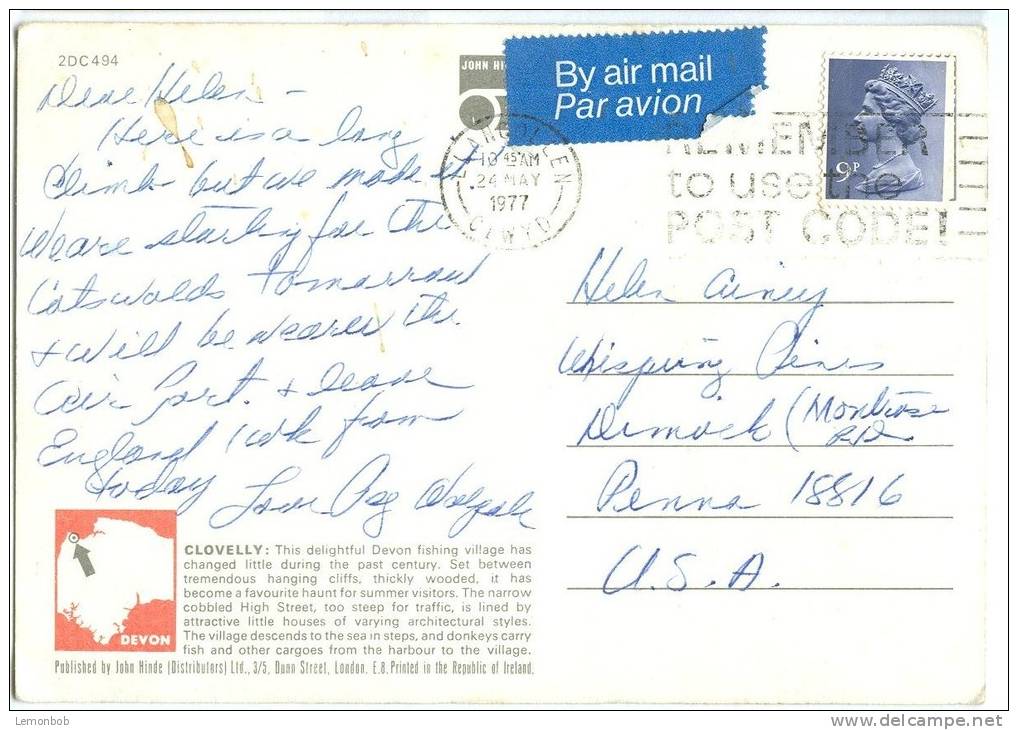 2DC494
JOHN HI
By air mail
Par avion
LLANGOLLEN
10 45 AM
24 MAY
1977
CLWYD
REMEMBER
to use the
POST CODE!
9P
Dear Helen –
Here is a long
climb but we made it.
We are starting for the
Cotswolds tomorrow
+ will be nearer the
Air Port. + leave
England 1 wk from
today Love Peg
Helen Ainey
Whispering Pines
Dimock (Montrose
R.D.
Penna 18816
U.S.A.
DEVON
CLOVELLY: This delightful Devon fishing village has
changed little during the past century. Set between
tremendous hanging cliffs, thickly wooded, it has
become a favourite haunt for summer visitors. The narrow
cobbled High Street, too steep for traffic, is lined by
attractive little houses of varying architectural styles.
The village descends to the sea in steps, and donkeys carry
fish and other cargoes from the harbour to the village.
Published by John Hinde (Distributors) Ltd., 3/5, Dunn Street, London. E.8. Printed in the Republic of Ireland.
Lemonbob
delcampe.net